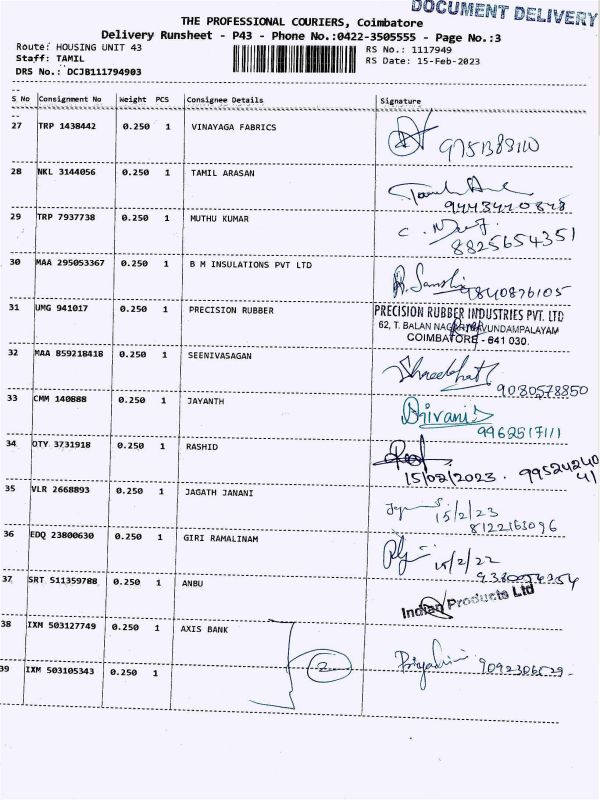 DOCUMENT DELIVERY
THE PROFESSIONAL COURIERS, Coimbatore
Delivery Runsheet - P43 - Phone No.:0422-3505555 - Page No.:3
Route: HOUSING UNIT 43
RS No.: 1117949
Staff: TAMIL
RS Date: 15-Feb-2023
DRS No.: DCJB111794903
S No Consignment No Weight PCS Consignee Details Signature
27 TRP 1438442 0.250 1 VINAYAGA FABRICS
28 NKL 3144056 0.250 1 TAMIL ARASAN
9443440848
29 TRP 7937738 0.250 1 MUTHU KUMAR
8825654351
30 MAA 295053367 0.250 1 B M INSULATIONS PVT LTD
9840876105
31 UMG 941017 0.250 1 PRECISION RUBBER
PRECISION RUBBER INDUSTRIES PVT. LTD
62, T. BALAN NAGAR, KAVUNDAMPALAYAM
COIMBATORE - 641 030.
32 MAA 859218418 0.250 1 SEENIVASAGAN
9080578850
33 CMM 140888 0.250 1 JAYANTH
9962517111
34 OTY 3731918 0.250 1 RASHID
15/02/2023. 99524240
41
35 VLR 2668893 0.250 1 JAGATH JANANI
15/2/23
8122163096
36 EDQ 23800630 0.250 1 GIRI RAMALINAM
37 SRT 511359788 0.250 1 ANBU
Indian Products Ltd
38 IXM 503127749 0.250 1 AXIS BANK
2
39 IXM 503105343 0.250 1
9092306529